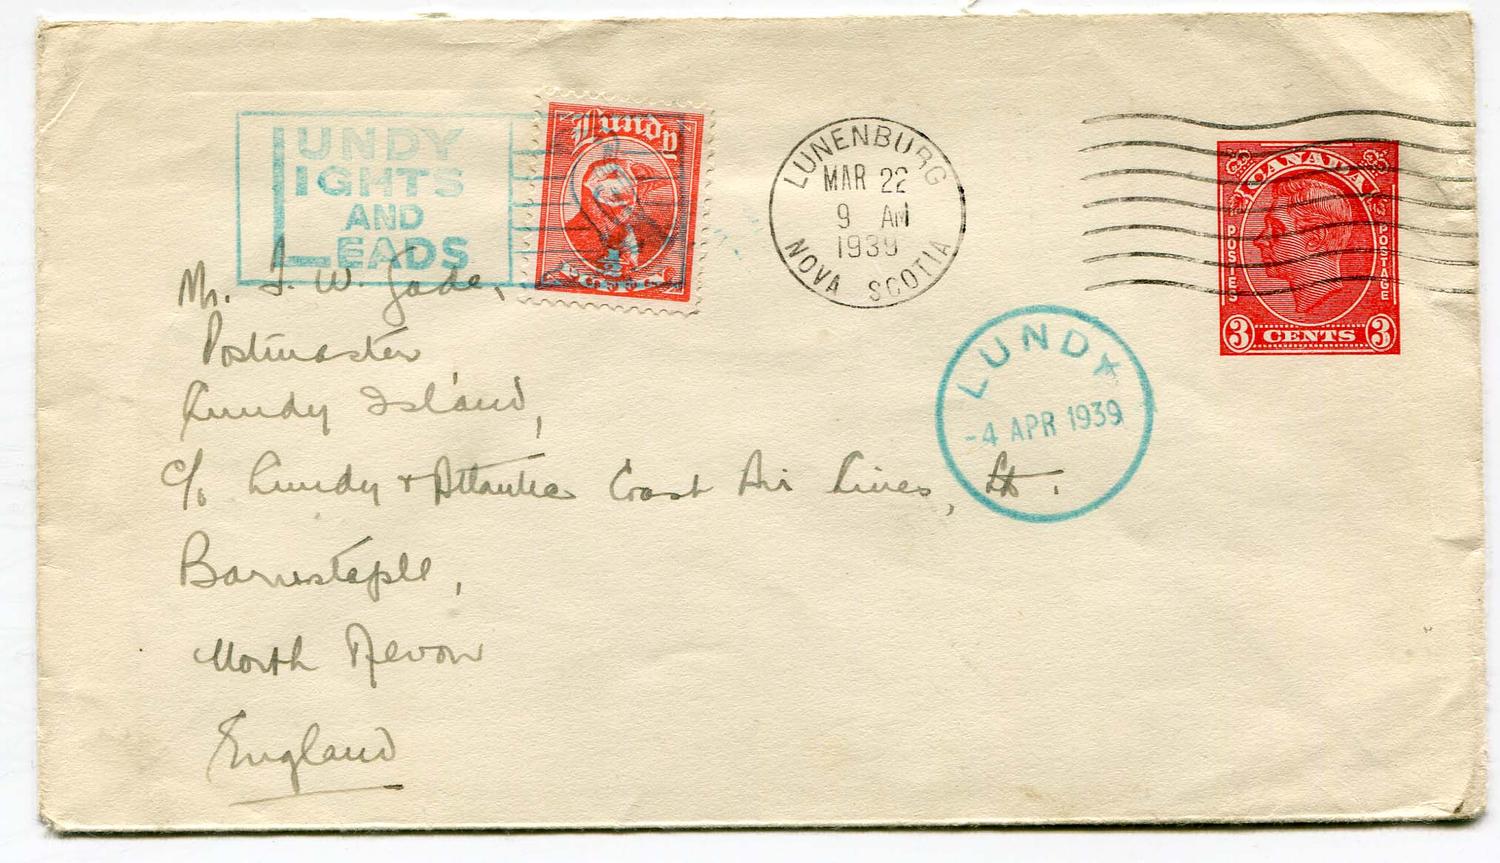 LUNDY
LIGHTS
AND
LEADS
Lundy
LUNENBURG
MAR 22
9 AM
1939
NOVA SCOTIA
CANADA
POSTES
POSTAGE
3 CENTS 3
LUNDY
-4 APR 1939
Mr. F. W. Gade,
Postmaster
Lundy Island,
c/o Lundy & Atlantic Coast Air Lines, Lt.
Barnstaple,
North Devon
England